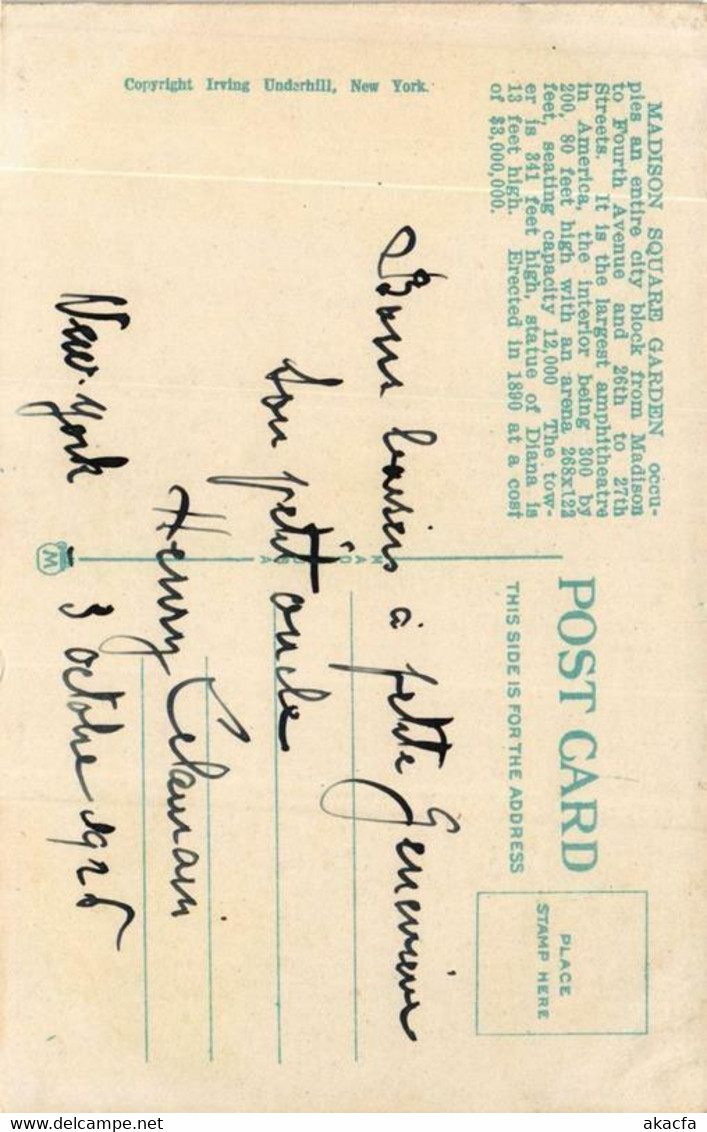 MADISON SQUARE GARDEN occu-
pies an entire city block from Madison
to Fourth Avenue and 26th to 27th
Streets. It is the largest amphitheatre
in America, the interior being 300 by
200, 80 feet high with an arena 268x122
feet, seating capacity 12,000 The tow-
er is 341 feet high, statue of Diana is
13 feet high. Erected in 1890 at a cost
of $3,000,000.
Copyright Irving Underhill, New York.
POST CARD
THIS SIDE IS FOR THE ADDRESS
PLACE
STAMP HERE
Bons baisers à petite Geneviève
Son petit oncle
Henry
New-York 3 octobre 1925
M
delcampe.net
akacfa